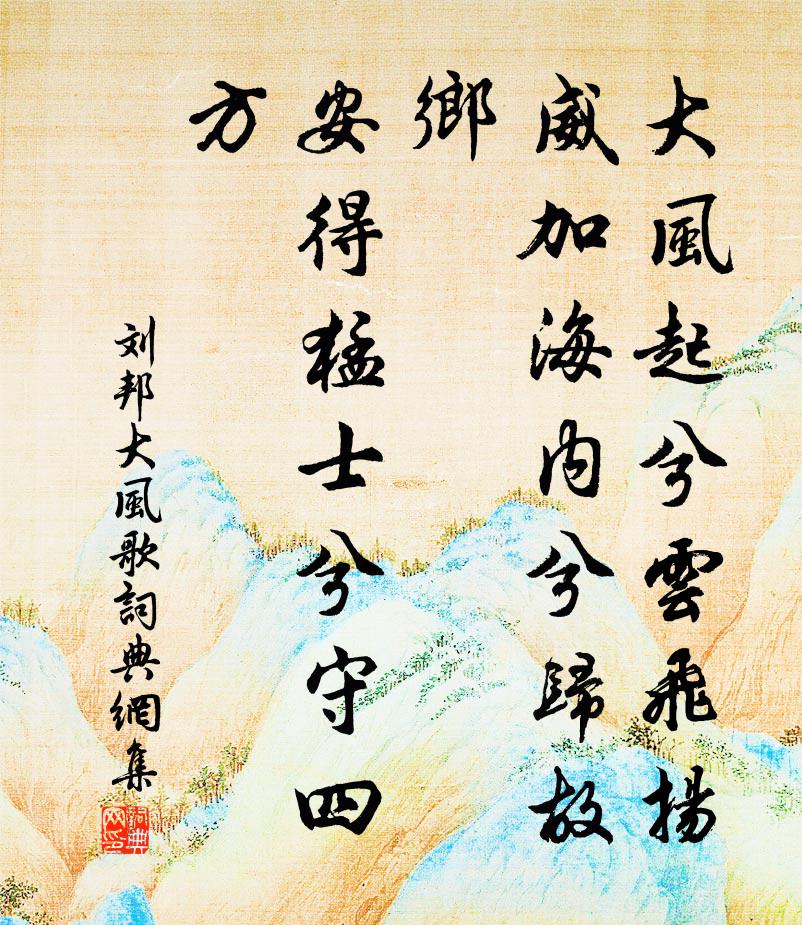 大風起兮雲飛揚
威加海内兮歸故
鄉
安得猛士兮守四
方
刘邦大風歌詞典網集
詞典網印